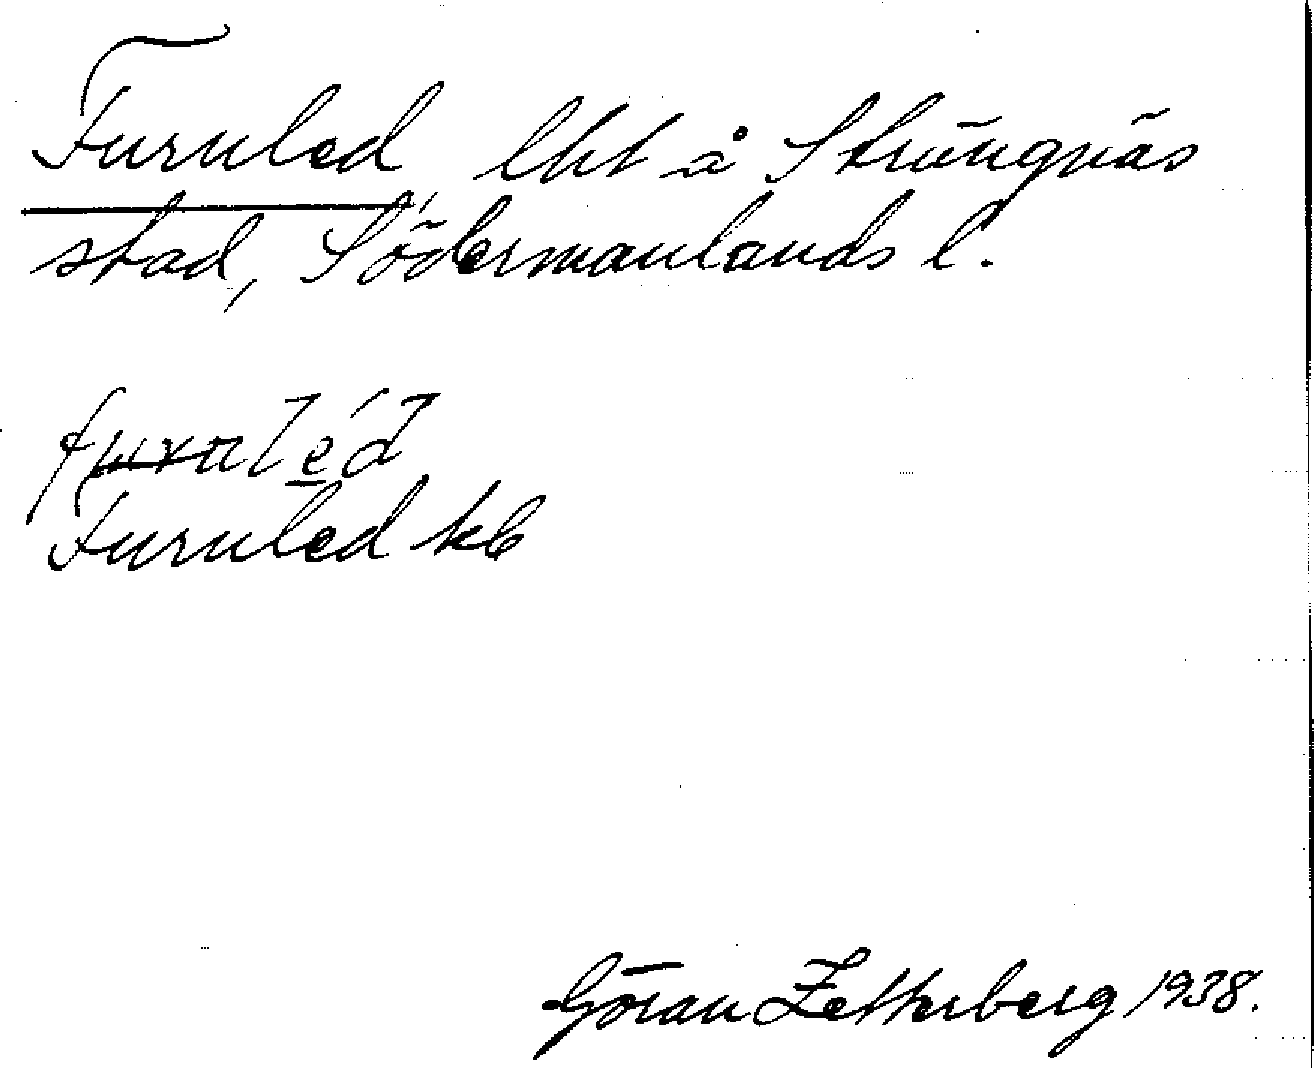 Furuled, lht å Strängnäs
stad, Södermanlands l.
Furuled kb
Göran Zetterberg 1938.